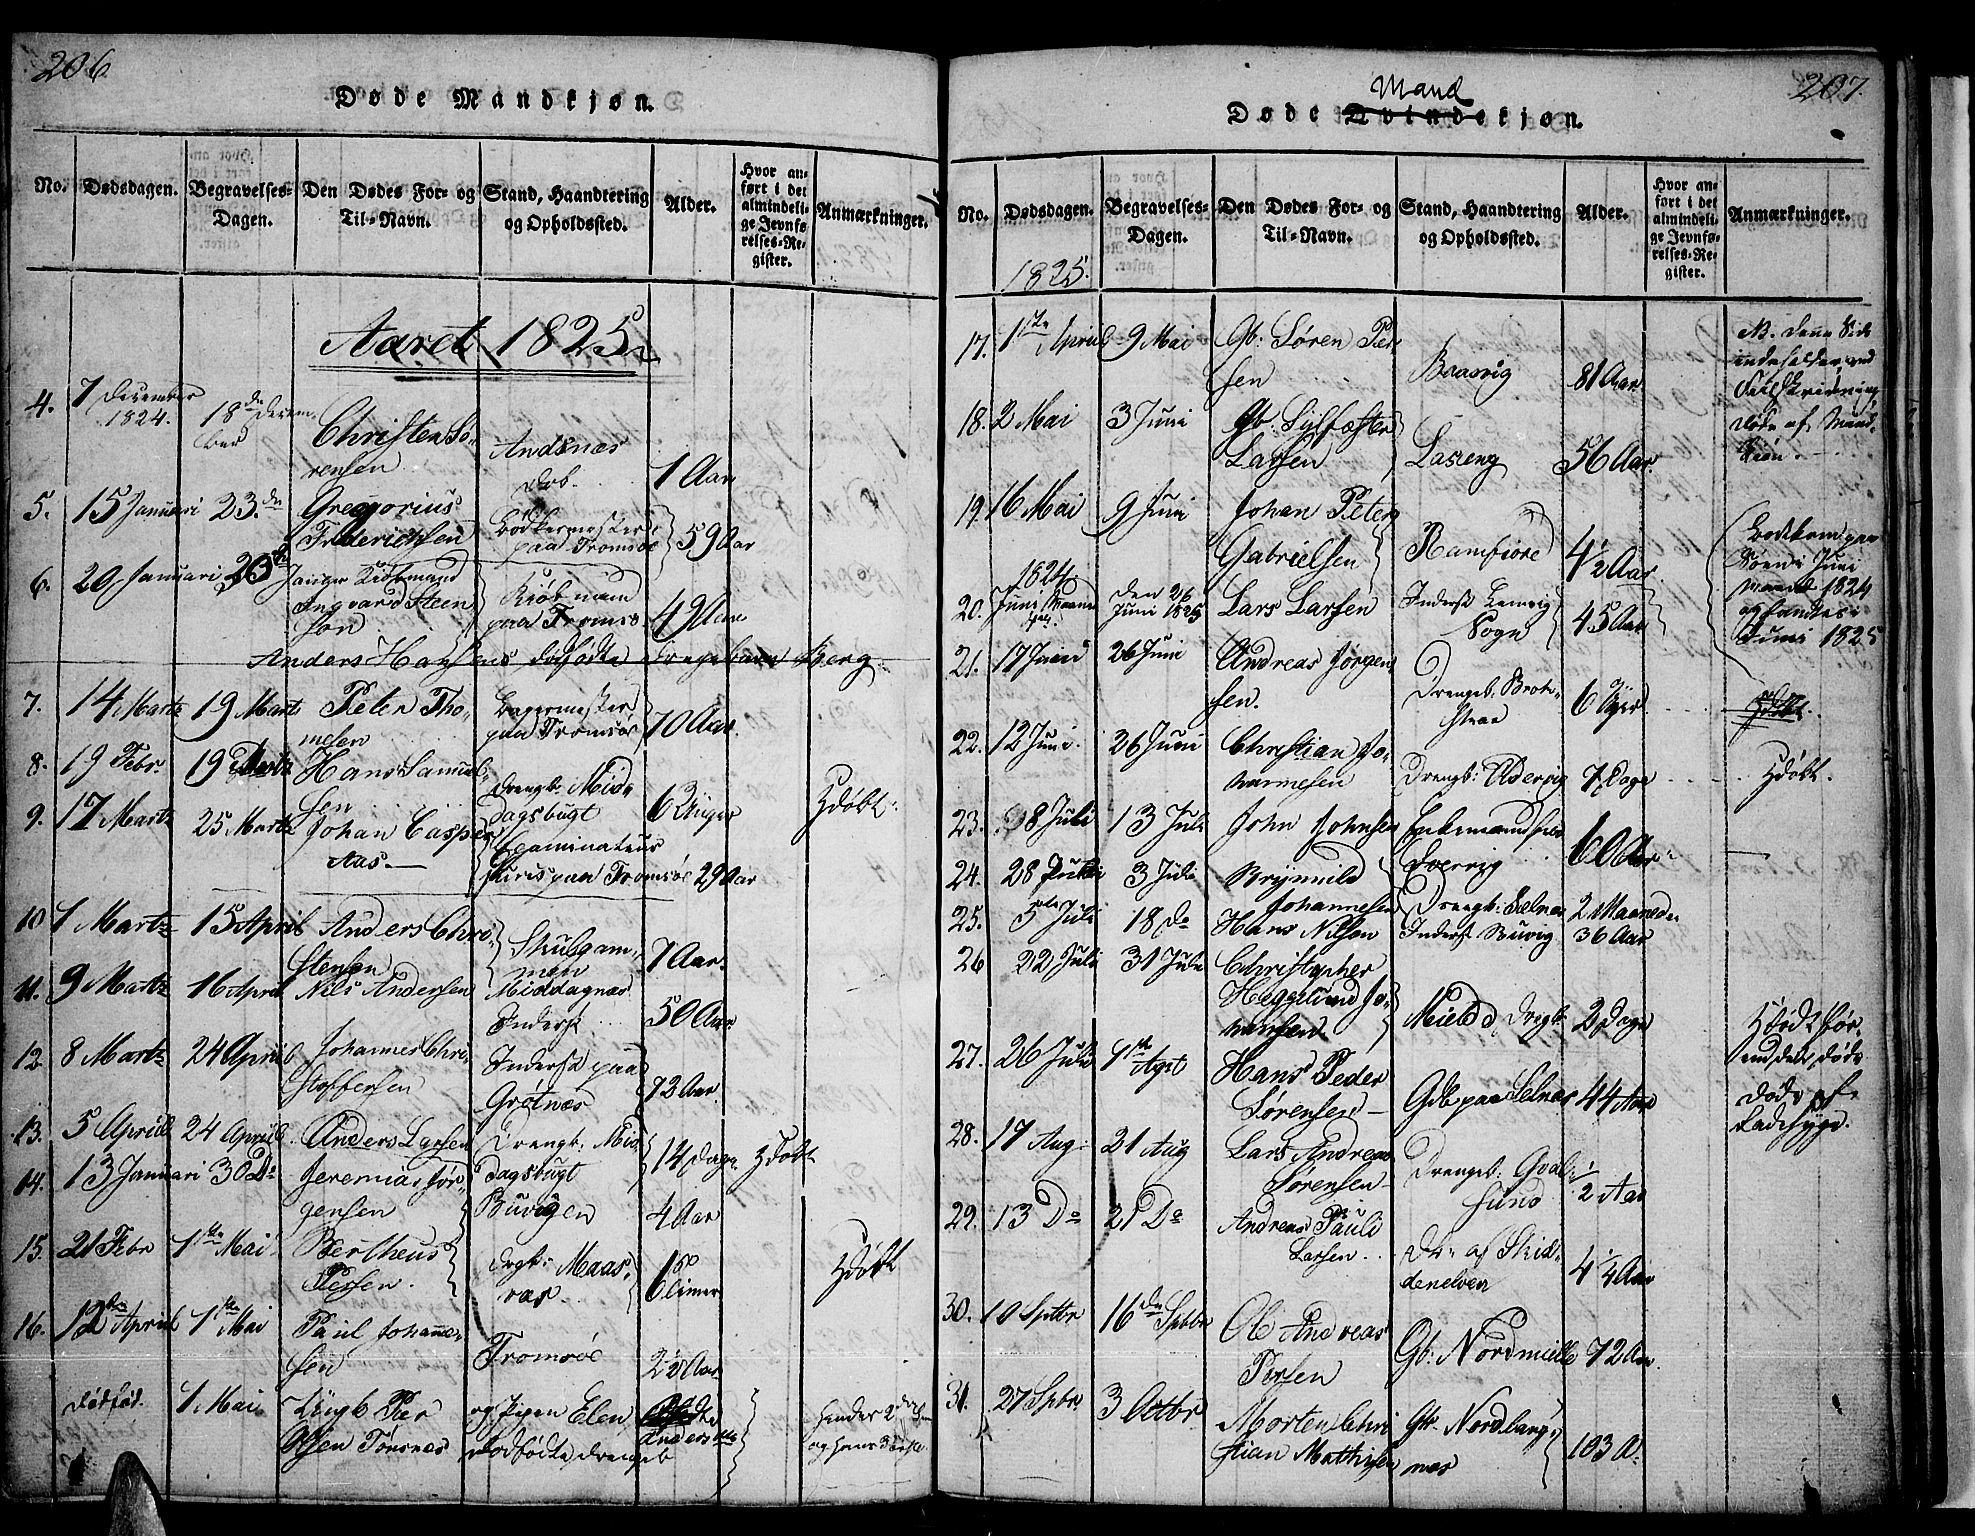 206
Døde Mandkjøn.
No. Dødsdagen. Begravelses-Dagen. Den Dødes For- og Til-Navn. Stand, Haandtering og Opholdssted. Alder. Hvor anført i det almindelige Jevnførelses-Register. Anmærkninger.
Aaret 1825
4. 7 December 1824. 18de December Christen Sorensen Andsnæs 1 Aar
5. 15 Januari 23.de Gregorius Friderichsen Bødkermester paa Tromsøe 59 Aar
6. 20 Januari Ingvard Steenson Kiøbmand paa Tromsø 49 Aar
Anders Hansens dødfødte Drengebarn Berg
7. 14 Martz 19 Martz Peter Thomesen Bagermester paa Tromsøe 70 Aar.
8. 19 Febr. 19 Martz Hans Samuelsen Drengb: Middagsbugt 6 Uger Hdøbt
9. 17 Martz 25 Martz Johan Casper Aas Examinatus Juris paa Tromsøe 29 Aar
10 1 Martz 15 April Anders Christensen Skulgammen 7 Aar.
11. 9 Martz 16 April Nils Andersen Middagnæs Inderst 50 Aar
12. 8 Martz 24 April Johannes Christoffersen Inderst paa Grøtnæs 72 Aar.
13. 5 April 24 April Anders Larsen Drengb: Middagsbugt 14 Dage Hdøbt
14. 13 Januari 30 Do Jeremias Jørgensen Buvigen 4 Aar
15. 21 Febr 1ste Mai Bertheus Persen. Drgb: Maasvær Hdøbt
16. 12de April 1ste Mai Paul Johannesen Tromsøe 2½ Aar
Dødfød. 1 Mai Olsen Tønsnes og Pigen Elen Anders dødfødte Drengeb
207.
Døde Mand Qvindekjøn.
No. Dødsdagen. Begravelses-Dagen. Den Dødes For- og Til-Navn. Stand, Haandtering og Opholdssted. Alder. Hvor anført i det almindelige Jevnførelses-Register. Anmærkninger.
1825.
17. 1ste April 9 Mai Gb: Søren Persen 81 Aar NB. denne Side indeholder ved Feilskrivning Døde af Mandkiøn.
18. 2 Mai 3 Juni Gb. Sylfæster Larsen 56 Aar
19. 16 Mai 9 Juni Johan Peter Gabrielsen Ramfiore 4½ Aar
20. 1824 Juni Den 26 Juni 1825 Lars Larsen Inderst Lenvig Sogn 45 Aar Bortkom paa Søen i Juni Maaned 1824 og fandtes i Juni 1825
21. 17 Juni 26 Juni Andreas Jørgensen. Drengeb: 6 Uger
22. 12 Juni. 26 Juni Christian Johannesen Drengb: 7 Dage Hdøbt.
23. 8 Juli 13 Juli John Johnsen Enkemand 60 Aar
24. 28 3 Juli Brynnild Johannesen Drengb: Selnæs 2 Maaneder
25. 5 Juli 18 do Hans Nilsen Inderst Buvig 36 Aar
26 22 Juli 31 Juli Christopher Hegelund Johansen Mield, Drengb. 2 Dage Hdødt førend den døde
27. 26 Juli 1ste Agst Hans Peder Sørensen Gdb paa Selnæs 44 Aar Døde af Radesyge.
28. 17 Aug: 21 Aug Lars Andreas Sørensen Drengeb: Qvalsund ½ Aar
29. 13 Do 21 Do Andreas Pauli Larsen Do af Skiddenelven 4¼ Aar
30. 10 Sptbr 16de Sptbr Ole Andreas Persen Gb: Nordmielle 72 Aar.
31. 27 Spbr. 3 Octbr Morten Christian Mathisen Gb. Nordlangnæs 103 A.